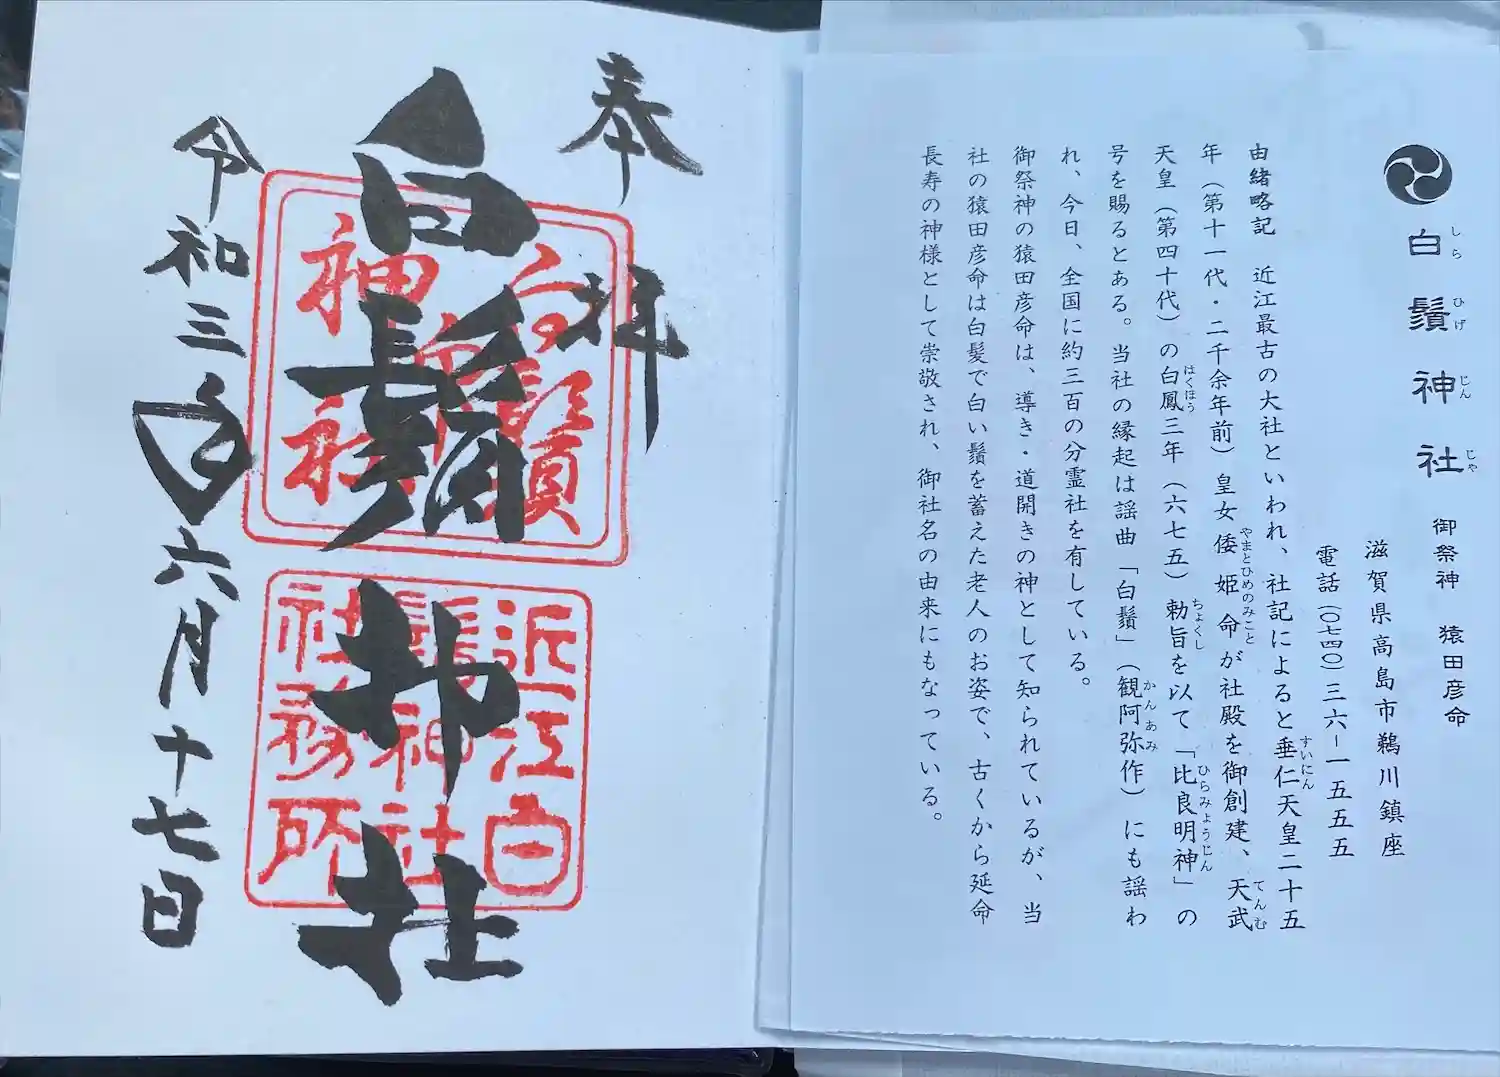 白鬚神社
しらひげじんじゃ
御祭神 猿田彦命
滋賀県高島市鵜川鎮座
電話(〇七四〇)三六ー一五五五
由緒略記 近江最古の大社といわれ、社記によると垂仁天皇二十五
すいにん
年(第十一代・二千余年前)皇女倭姫命が社殿を御創建、天武
やまとひめのみこと てんむ
天皇(第四十代)の白鳳三年(六七五)勅旨を以て「比良明神」の
はくほう ちょくし ひらみょうじん
号を賜るとある。当社の縁起は謡曲「白鬚」(観阿弥作)にも謡わ
かんあみ
れ、今日、全国に約三百の分霊社を有している。
御祭神の猿田彦命は、導き・道開きの神として知られているが、当
社の猿田彦命は白髪で白い鬚を蓄えた老人のお姿で、古くから延命
長寿の神様として崇敬され、御社名の由来にもなっている。
奉拝
白鬚神社
令和三年六月十七日
白鬚
神社
近江白
鬚神社
社務所